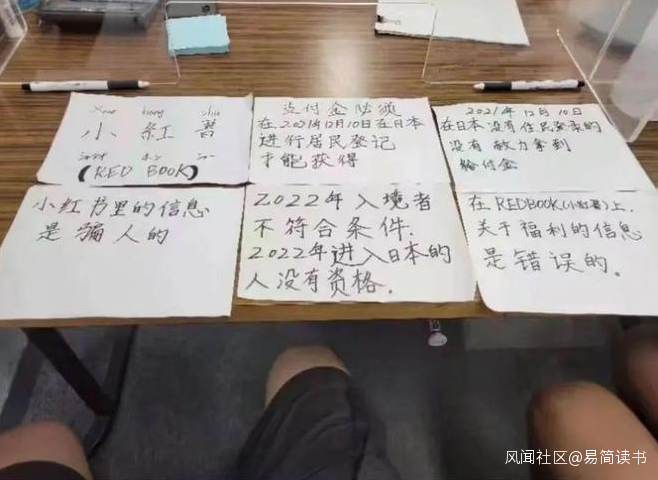 Xiao hong shu
小 紅 書
(RED BOOK)
支付金
在2021年12月10日在日本
进行居民登记
才能获得
2021年12月10日
在日本没有住民登录的
没有 权力拿到
给付金
小红书里的信息
是骗人的
2022年入境者
不符合条件.
2022年进入日本的
人没有资格.
在REDBOOK(小红書)上,
关于福利的信息
是错误的.
风闻社区@易简读书